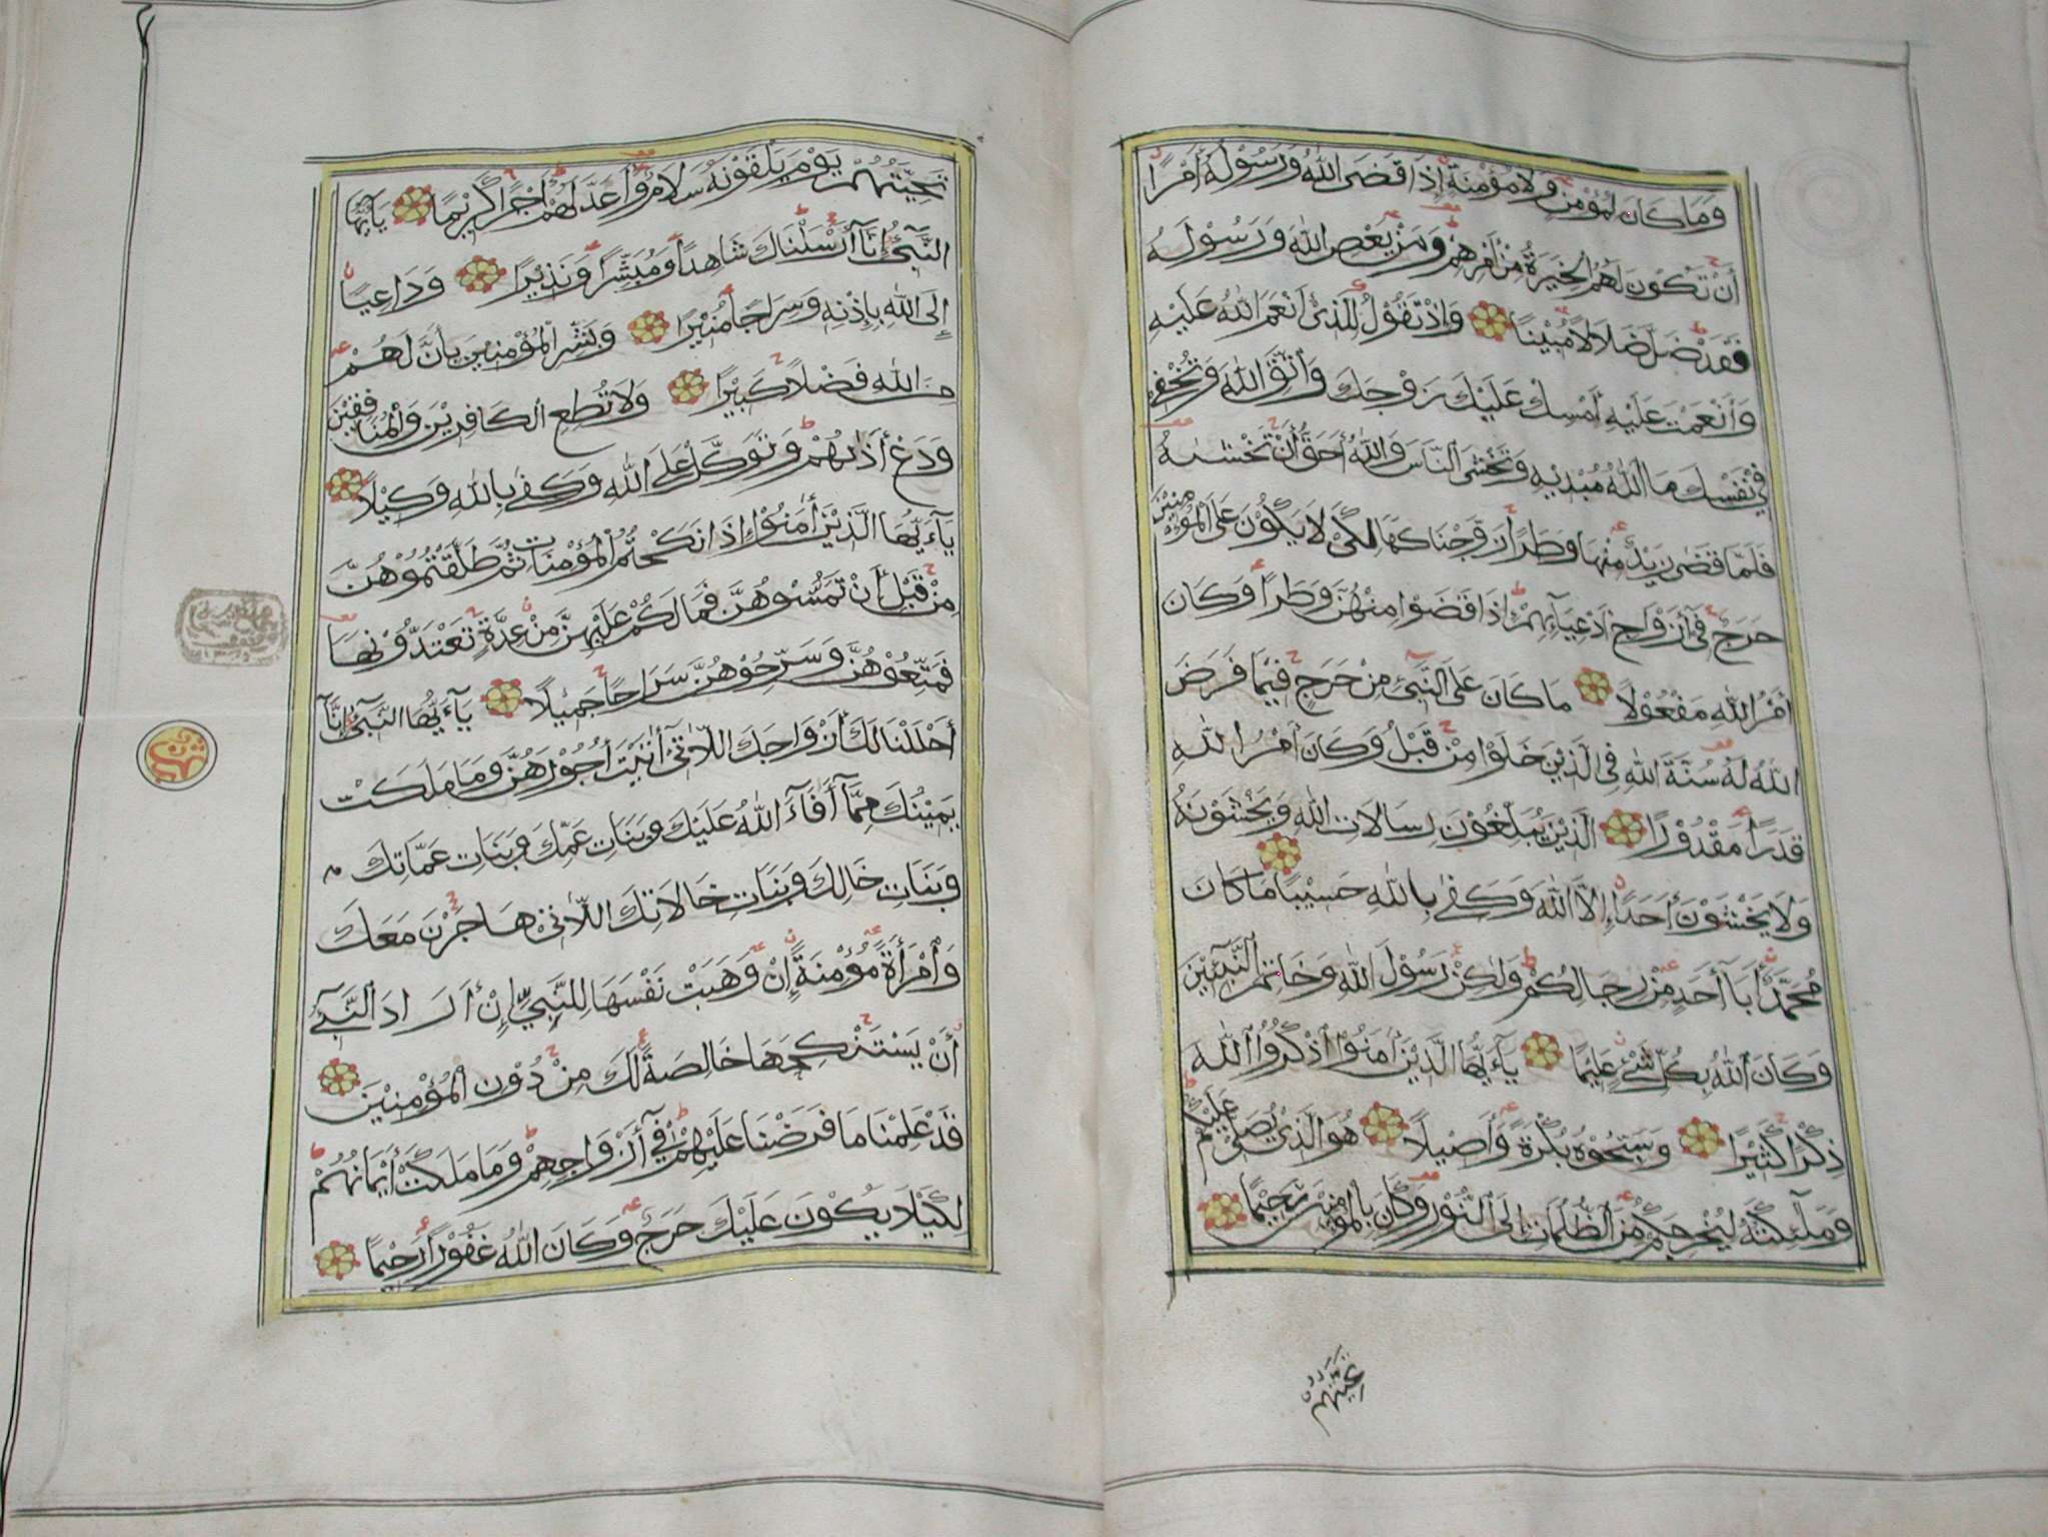 وَمَا كَانَ لِمُؤْمِنٍ وَلَا مُؤْمِنَةٍ إِذَا قَضَى اللَّهُ وَرَسُولُهُ أَمْرًا
أَنْ تَكُونَ لَهُمُ الْخِيَرَةُ مِنْ أَمْرِهِمْ وَمَنْ يَعْصِ اللَّهَ وَرَسُولَهُ
فَقَدْ ضَلَّ ضَلَالًا مُبِينًا وَإِذْ تَقُولُ لِلَّذِي أَنْعَمَ اللَّهُ عَلَيْهِ
وَأَنْعَمْتَ عَلَيْهِ أَمْسِكْ عَلَيْكَ زَوْجَكَ وَاتَّقِ اللَّهَ وَتُخْفِي
فِي نَفْسِكَ مَا اللَّهُ مُبْدِيهِ وَتَخْشَى النَّاسَ وَاللَّهُ أَحَقُّ أَنْ تَخْشَىٰهُ
فَلَمَّا قَضَىٰ زَيْدٌ مِنْهَا وَطَرًا زَوَّجْنَاكَهَا لِكَيْ لَا يَكُونَ عَلَى الْمُؤْمِنِينَ
حَرَجٌ فِي أَزْوَاجِ أَدْعِيَائِهِمْ إِذَا قَضَوْا مِنْهُنَّ وَطَرًا وَكَانَ
أَمْرُ اللَّهِ مَفْعُولًا مَا كَانَ عَلَى النَّبِيِّ مِنْ حَرَجٍ فِيمَا فَرَضَ
اللَّهُ لَهُ سُنَّةَ اللَّهِ فِي الَّذِينَ خَلَوْا مِنْ قَبْلُ وَكَانَ أَمْرُ اللَّهِ
قَدَرًا مَقْدُورًا الَّذِينَ يُبَلِّغُونَ رِسَالَاتِ اللَّهِ وَيَخْشَوْنَهُ
وَلَا يَخْشَوْنَ أَحَدًا إِلَّا اللَّهَ وَكَفَىٰ بِاللَّهِ حَسِيبًا مَا كَانَ
مُحَمَّدٌ أَبَا أَحَدٍ مِنْ رِجَالِكُمْ وَلَٰكِنْ رَسُولَ اللَّهِ وَخَاتَمَ النَّبِيِّينَ
وَكَانَ اللَّهُ بِكُلِّ شَيْءٍ عَلِيمًا يَا أَيُّهَا الَّذِينَ آمَنُوا اذْكُرُوا اللَّهَ
ذِكْرًا كَثِيرًا وَسَبِّحُوهُ بُكْرَةً وَأَصِيلًا هُوَ الَّذِي يُصَلِّي عَلَيْكُمْ
وَمَلَٰئِكَتُهُ لِيُخْرِجَكُمْ مِنَ الظُّلُمَاتِ إِلَى النُّورِ وَكَانَ بِالْمُؤْمِنِينَ رَحِيمًا
تَحِيَّتُهُمْ
تَحِيَّتُهُمْ يَوْمَ يَلْقَوْنَهُ سَلَامٌ وَأَعَدَّ لَهُمْ أَجْرًا كَرِيمًا يَا أَيُّهَا
النَّبِيُّ إِنَّا أَرْسَلْنَاكَ شَاهِدًا وَمُبَشِّرًا وَنَذِيرًا وَدَاعِيًا
إِلَى اللَّهِ بِإِذْنِهِ وَسِرَاجًا مُنِيرًا وَبَشِّرِ الْمُؤْمِنِينَ بِأَنَّ لَهُمْ
مِنَ اللَّهِ فَضْلًا كَبِيرًا وَلَا تُطِعِ الْكَافِرِينَ وَالْمُنَافِقِينَ
وَدَعْ أَذَاهُمْ وَتَوَكَّلْ عَلَى اللَّهِ وَكَفَىٰ بِاللَّهِ وَكِيلًا
يَا أَيُّهَا الَّذِينَ آمَنُوا إِذَا نَكَحْتُمُ الْمُؤْمِنَاتِ ثُمَّ طَلَّقْتُمُوهُنَّ
مِنْ قَبْلِ أَنْ تَمَسُّوهُنَّ فَمَا لَكُمْ عَلَيْهِنَّ مِنْ عِدَّةٍ تَعْتَدُّونَهَا
فَمَتِّعُوهُنَّ وَسَرِّحُوهُنَّ سَرَاحًا جَمِيلًا يَا أَيُّهَا النَّبِيُّ إِنَّا
أَحْلَلْنَا لَكَ أَزْوَاجَكَ اللَّاتِي آتَيْتَ أُجُورَهُنَّ وَمَا مَلَكَتْ
يَمِينُكَ مِمَّا أَفَاءَ اللَّهُ عَلَيْكَ وَبَنَاتِ عَمِّكَ وَبَنَاتِ عَمَّاتِكَ
وَبَنَاتِ خَالِكَ وَبَنَاتِ خَالَاتِكَ اللَّاتِي هَاجَرْنَ مَعَكَ
وَامْرَأَةً مُؤْمِنَةً إِنْ وَهَبَتْ نَفْسَهَا لِلنَّبِيِّ إِنْ أَرَادَ النَّبِيُّ
أَنْ يَسْتَنْكِحَهَا خَالِصَةً لَكَ مِنْ دُونِ الْمُؤْمِنِينَ
قَدْ عَلِمْنَا مَا فَرَضْنَا عَلَيْهِمْ فِي أَزْوَاجِهِمْ وَمَا مَلَكَتْ أَيْمَانُهُمْ
لِكَيْلَا يَكُونَ عَلَيْكَ حَرَجٌ وَكَانَ اللَّهُ غَفُورًا رَحِيمًا